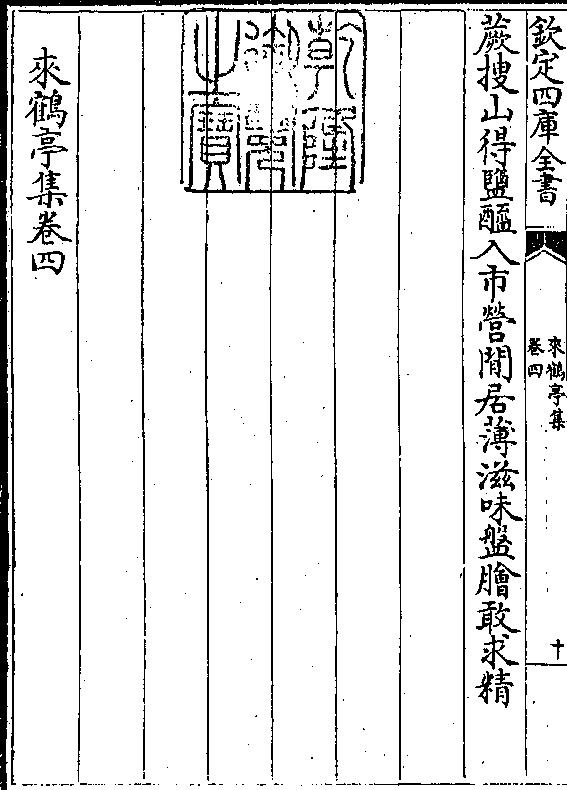 欽定四庫全書
來鶴亭集
卷四
十
蕨搜山得鹽醯入市營閒居薄滋味盤膾敢求精
乾隆御覽之寶
來鶴亭集卷四